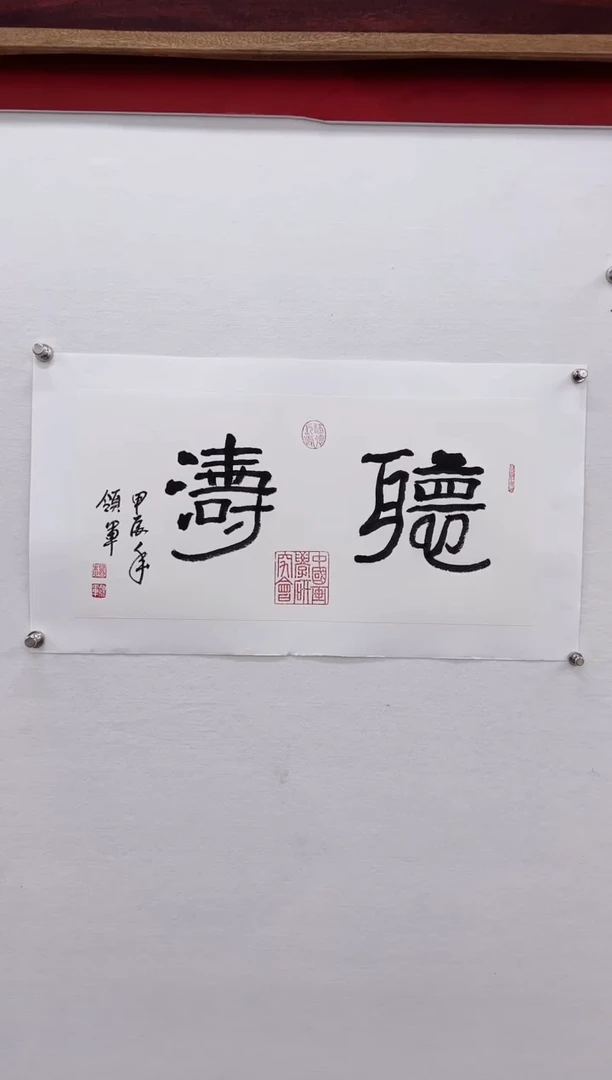 聽濤
甲辰年
領軍
中國畫學研究會